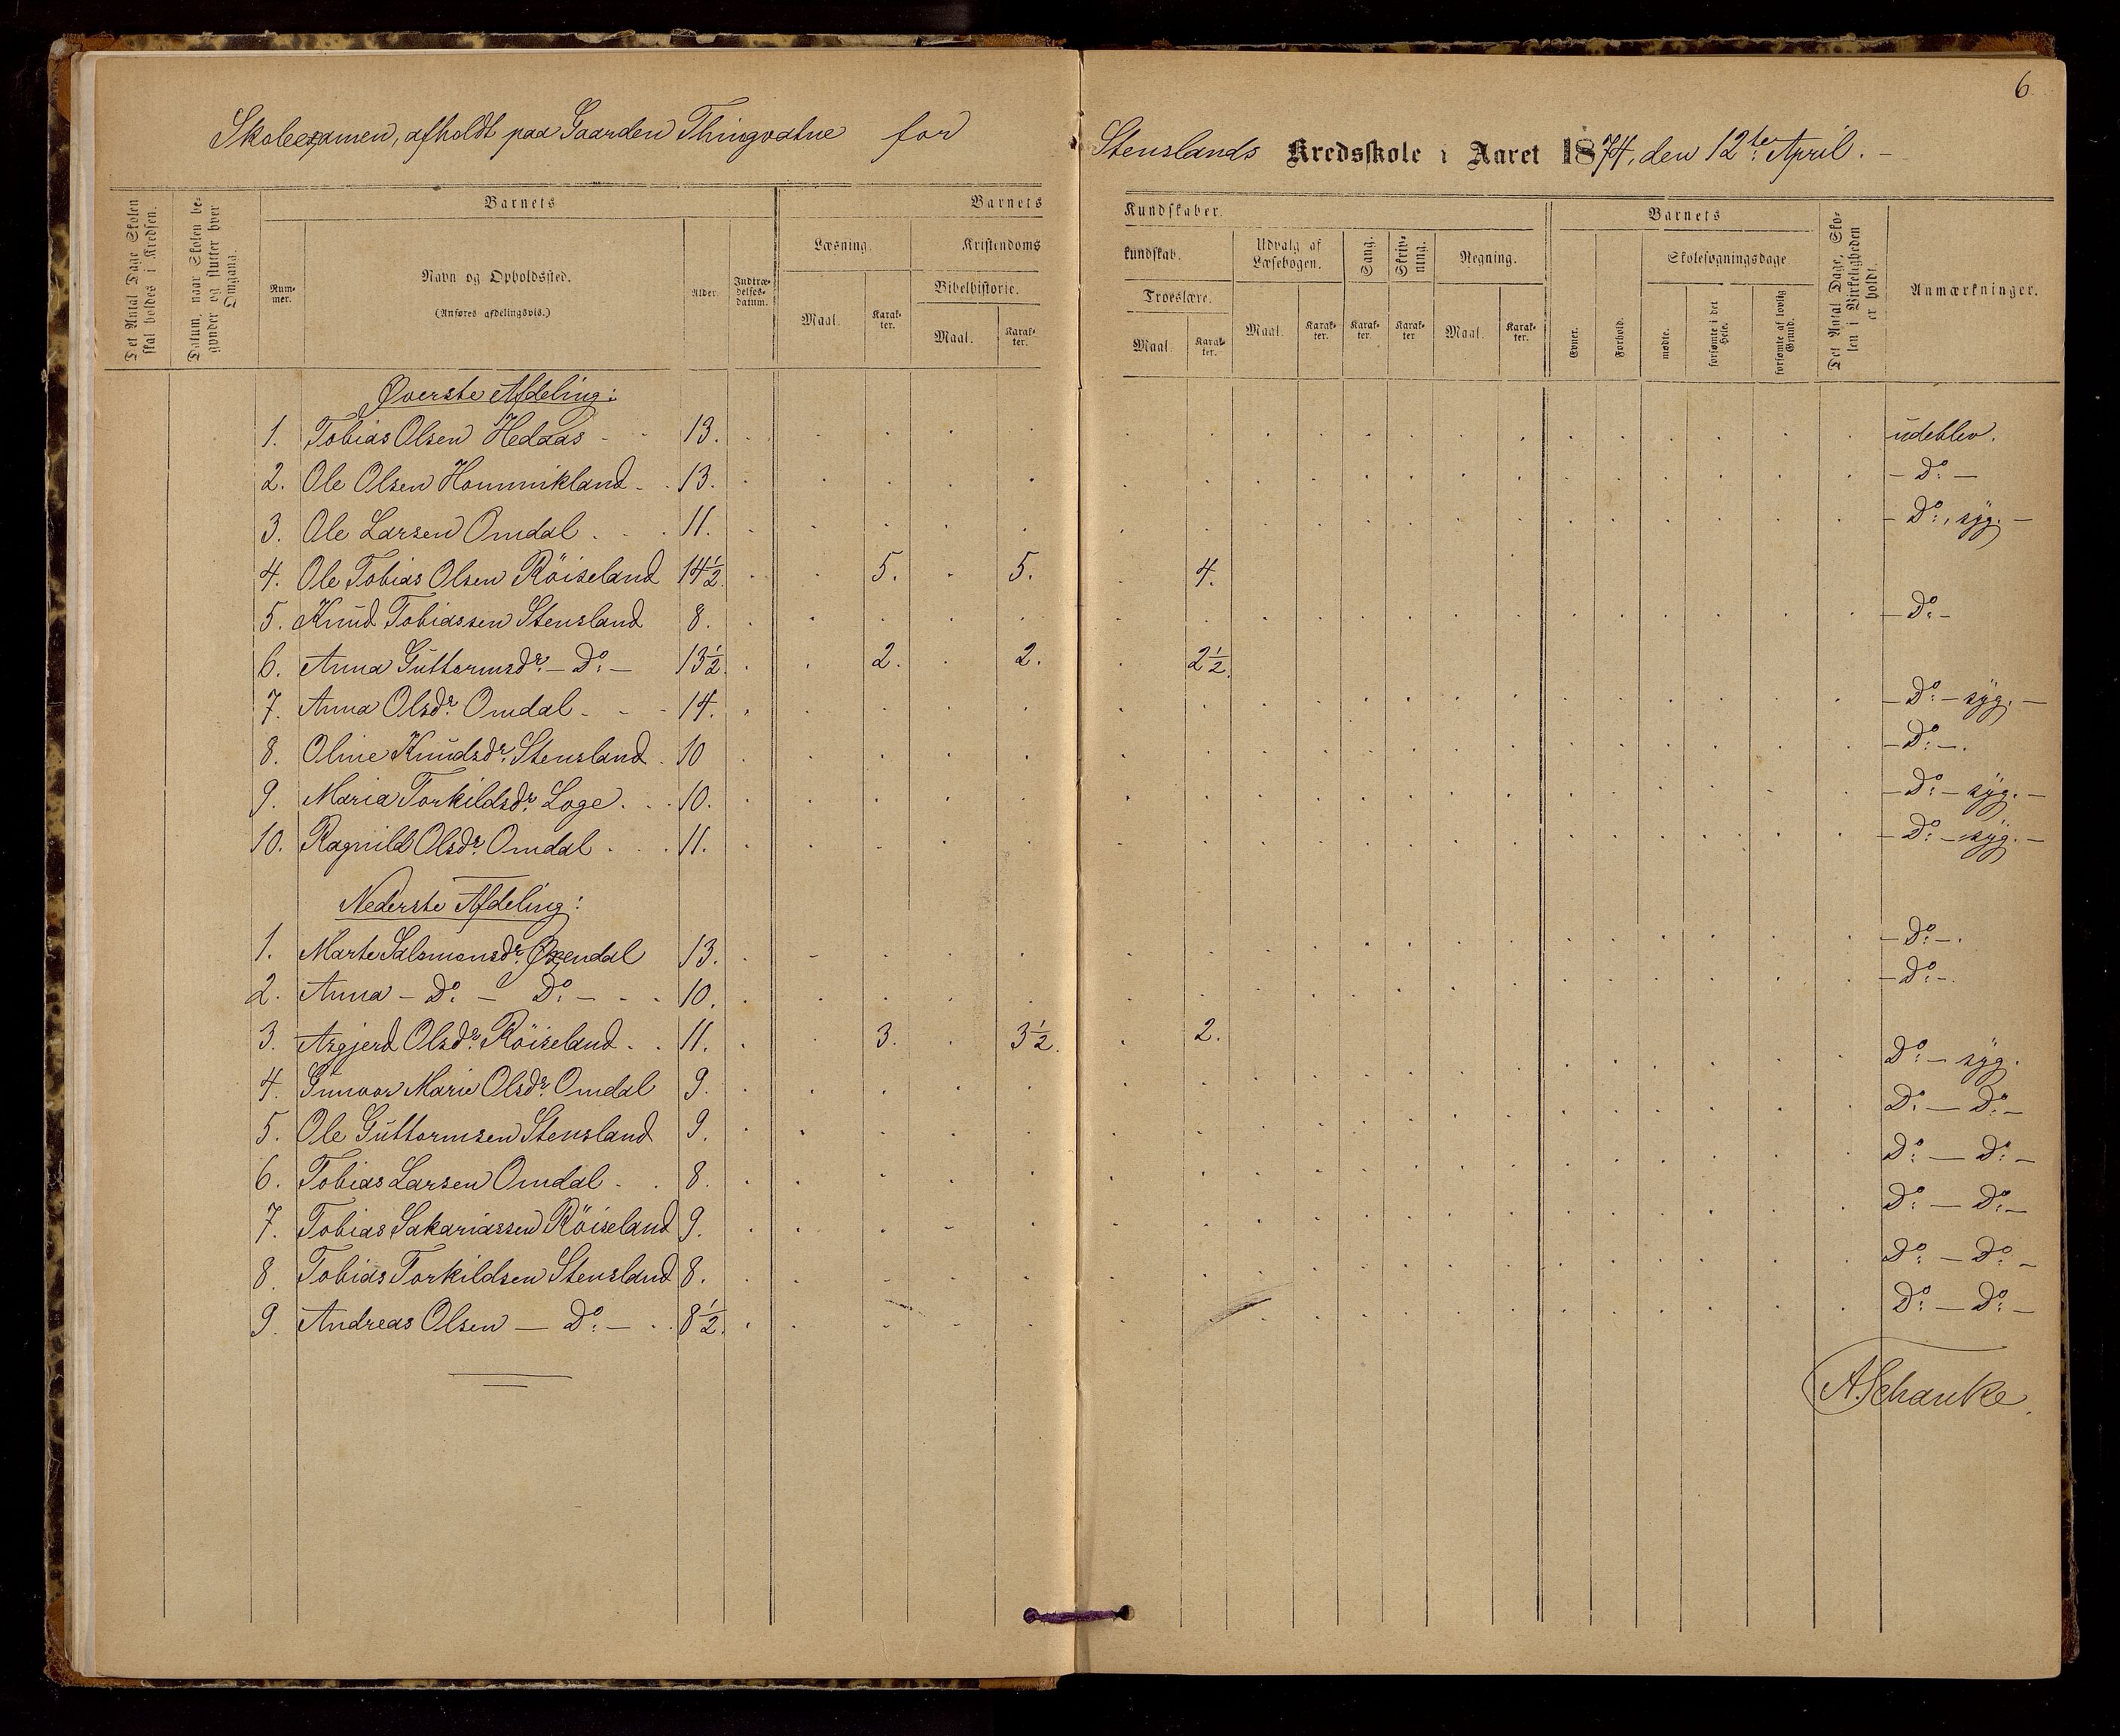 6
Skoleexamen, afholdt paa Gaarden Thingvatne for Stenslands Kredsskole i Aaret 1874, den 12te April. –
Det Antal Dage Skolen skal holdes i Kredsen.
Datum, naar Skolen begynder og slutter hver Omgang.
Barnets
Nummer.
Navn og Opholdssted.
(Anføres afdelingsvis.)
Alder.
Indtrædelses-datum.
Barnets Kundskaber.
Læsning.
Maal.
Karakter.
Kristendoms kundskab.
Bibelhistorie.
Maal.
Karakter.
Troeslære.
Maal.
Karakter.
Udvalg af Læsebogen.
Maal.
Karakter.
Sang.
Karakter.
Skrivning.
Karakter
Regning.
Maal.
Karakter.
Barnets
Evner.
Forhold.
Skolesøgningsdage.
mødte.
forsømte i det Hele.
forsømte af lovlig Grund.
Det Antal Dage, Skolen i Virkeligheden er holdt.
Anmærkninger.
Øverste Afdeling:
1. Tobias Olsen Hedaas - - 13. udeblev.
2. Ole Olsen Hommikland - . 13. – Do: –
3. Ole Larsen Omdal . . . 11. – Do:, syg. –
4. Ole Tobias Olsen Röiseland 14½. 5. 5. 4.
5. Knud Tobiassen Stensland 8. – Do: –
6. Anna Guttormsdr. – Do: – 13½. 2. 2. 2½.
7. Anna Olsdr. Omdal - - - 14. – Do: – syg. –
8. Oline Knudsdr. Stensland . 10 – Do: –.
9. Maria Torkildsdr. Loge . . . 10. – Do: – syg. –
10. Ragnild Olsdr. Omdal . . . 11. – Do: – syg. –
Nederste Afdeling:
1. Marte Salomonsdr. Øxendal 13. – Do: –.
2. Anna – Do: – Do: – - - 10. – Do: –.
3. Asgjerd Olsdr. Röiseland . . 11. 3. 3½. 2.
4. Gunvor Marie Olsdr. Omdal 9. Do: – syg.
5. Ole Guttormsen Stensland 9. Do: – Do: –
6. Tobias Larsen Omdal - . 8. Do: – Do: –
7. Tobias Sakariassen Röiseland 9. Do: – Do: –
8. Tobias Torkildsen Stensland 8. Do: – Do: –
9. Andreas Olsen – Do: – . . 8½. Do: – Do: –
A. Schanke.